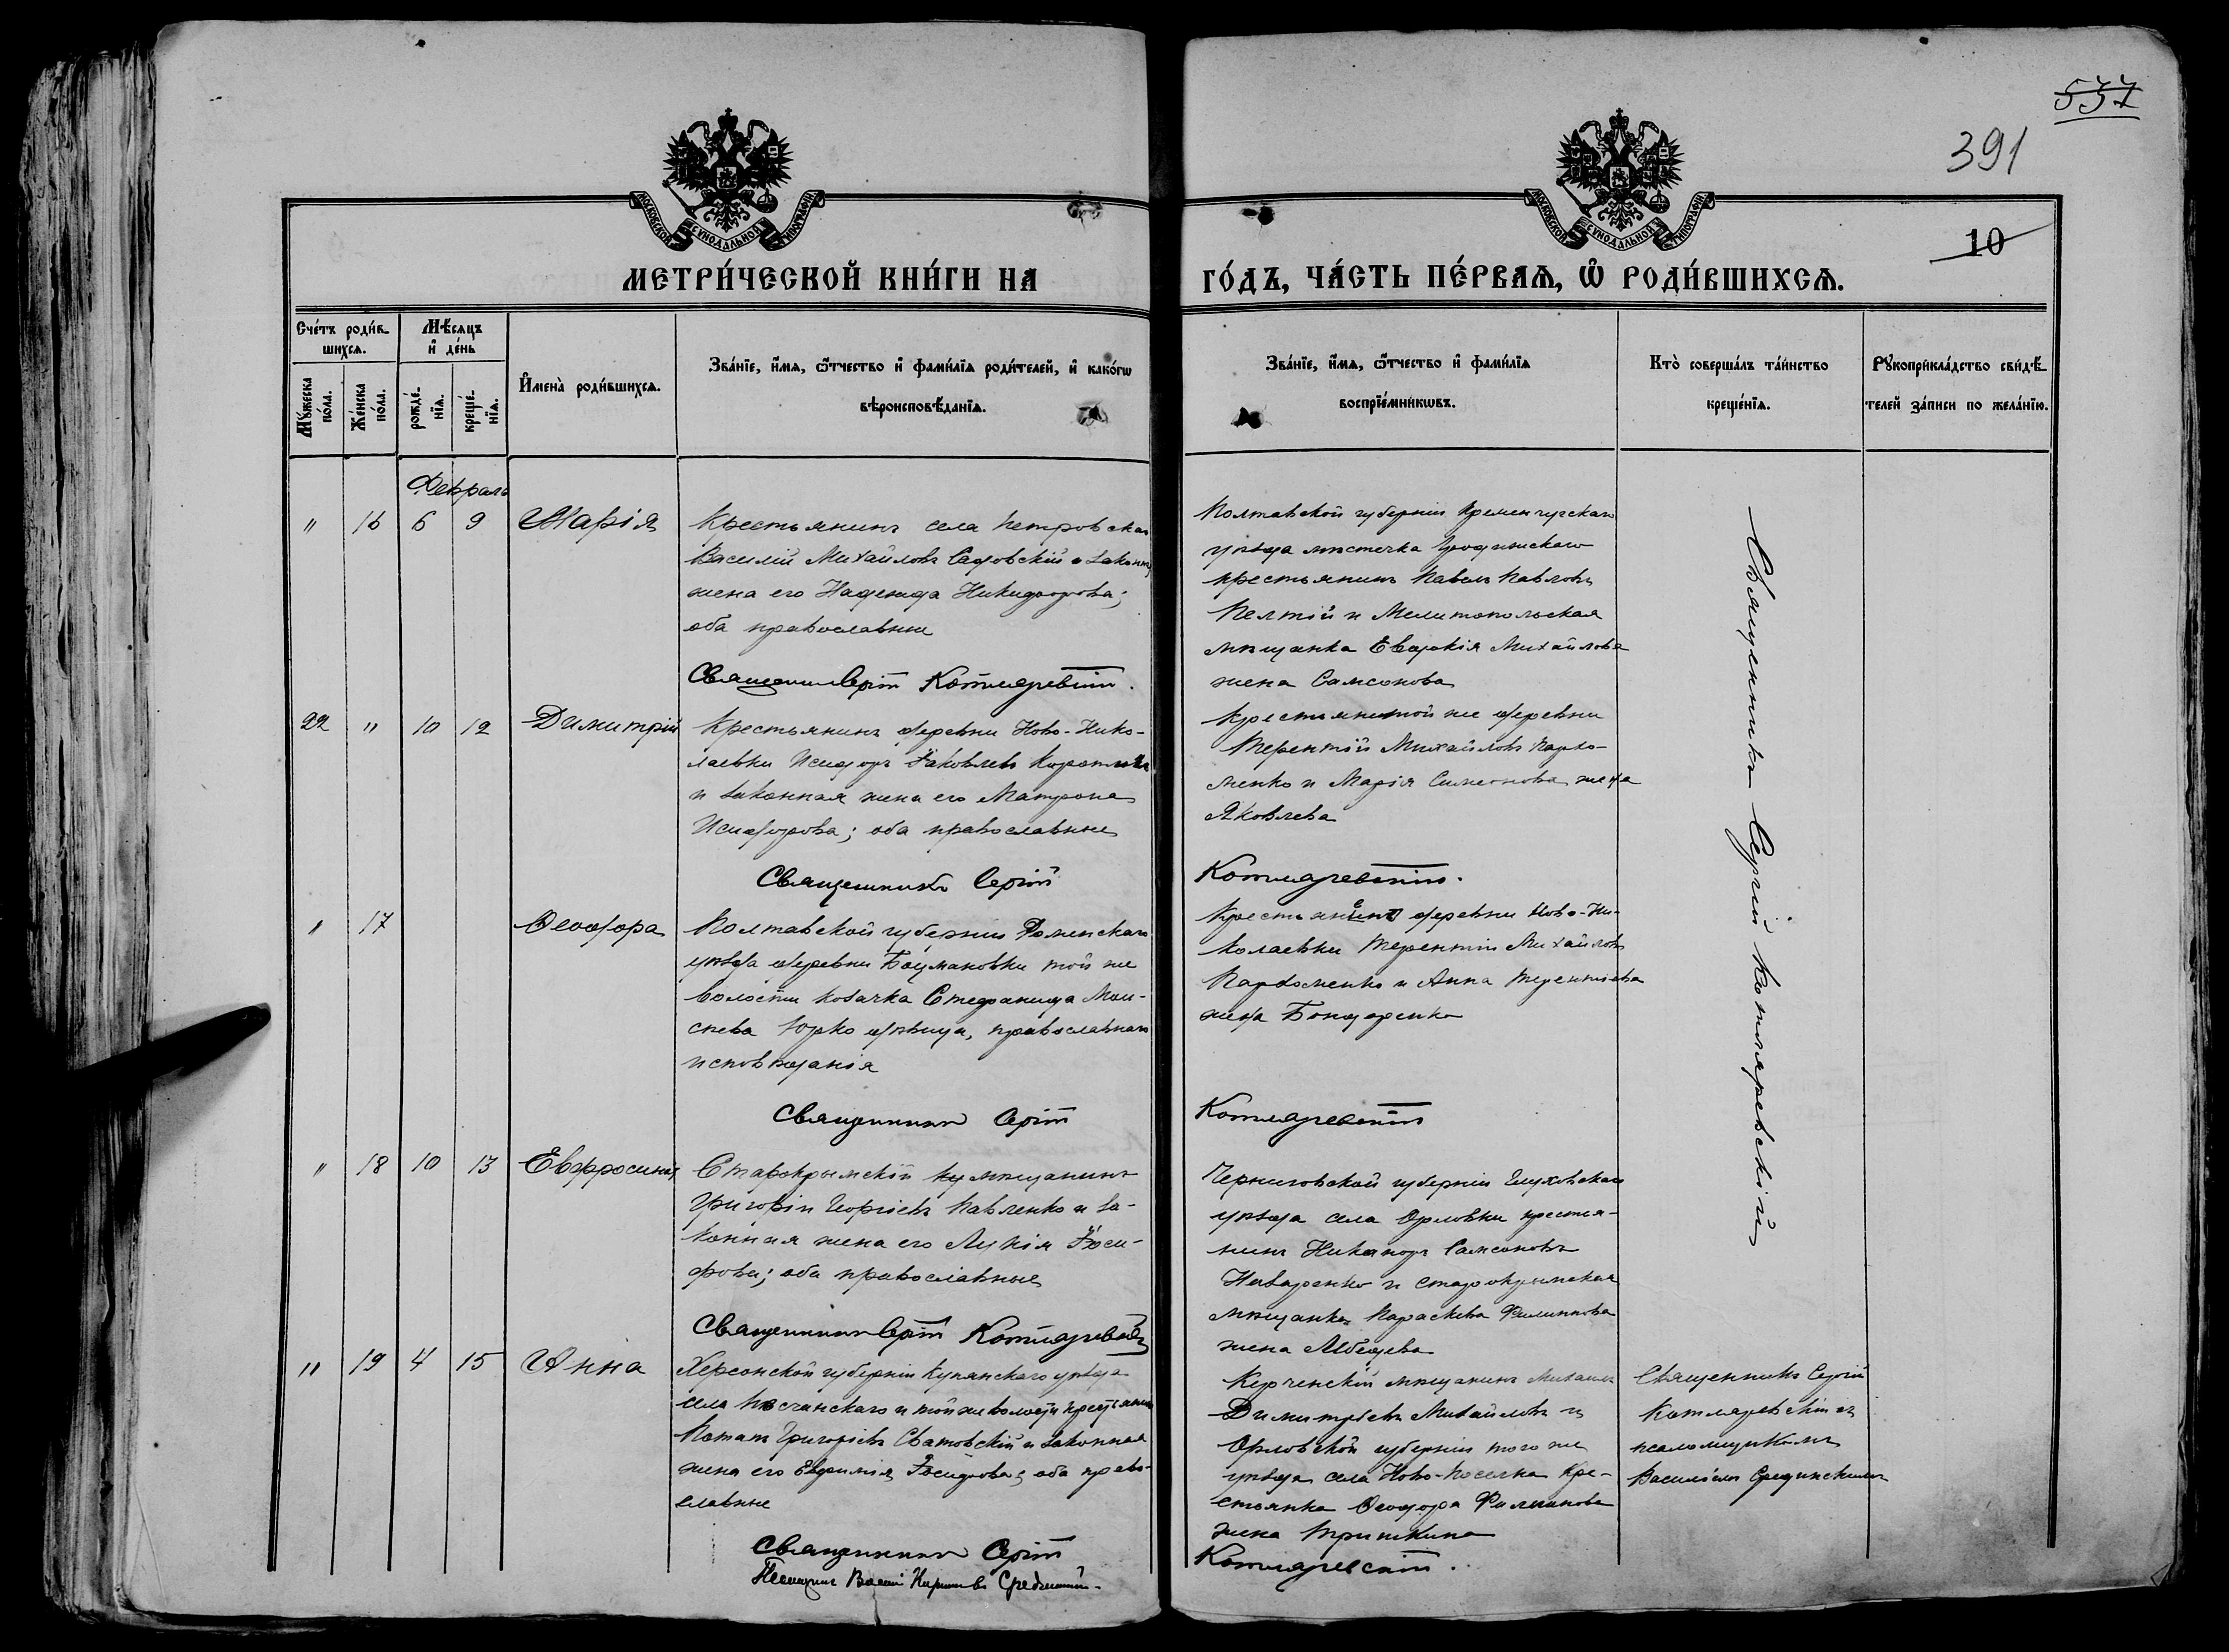 537
391
10
МОСКОВСКОЙ СѴНОДАЛЬНОЙ ТИПОГРАФІИ
МОСКОВСКОЙ СѴНОДАЛЬНОЙ ТИПОГРАФІИ
МЕТРИ́ЧЕСКОЙ КНИ́ГИ НА
ГО́ДЪ, ЧА́СТЬ ПЕ́РВАѦ, Ѡ҆ РОДИ́ВШИХСѦ.
Сче́тъ роди́в-
шихсѧ.
Мꙋ́жеска
по́ла.
Же́нска
по́ла.
Мѣ́сяцъ
и҆ де́нь
рожде́-
нїѧ.
креще́-
нїѧ.
И҆мена̀ роди́вшихсѧ.
Зва́нїе, и҆́мѧ, ѻ҆́тчество и҆ фами́лїѧ роди́телей, и҆ како́гѡ
вѣроисповѣ́данїѧ.
Зва́нїе, и҆́мѧ, ѻ҆́тчество и҆ фами́лїѧ
воспрїе́мникѡвъ.
Кто̀ соверша́лъ та́инство
креще́нїѧ.
Рꙋкоприкла́дство свидѣ́-
телей за́писи по жела́нїю.
Февраль
" 16 6 9 Марія
Крестьянинъ села Петровска
Василій Михайловъ Садовскій и законн
жена его Надежда Никифорова;
оба православные
Священник Сергій Котляревскій.
Полтавской губерніи Кременчугскаго
уѣзда мѣстечка
крестьянинъ Павелъ Павловъ
и Мелитопольская
мѣщанка Евдокія Михайлова
жена Самсонова
22 " 10 12 Димитрій
Крестьянинъ деревни Ново-Нико-
лаевки Исидоръ Іаковлевъ
и законная жена его Матрона
Исидорова; оба православные
Священникъ Сергій
той же деревни
Терентій Михайловъ Пархо-
менко и Марія Симеонова жена
Яковлева
Котляревскій.
" 17 Ѳеодора
Полтавской губерніи Роменскаго
уѣзда деревни Бацмановки той же
волости козачка Стефанида Мои-
сеева Юрко дѣвица, православнаго
исповѣданія
Священник Сергій
деревни Ново-Ни-
колаевки Терентій Михайловъ
Пархоменко и Анна Терентіева
жена Бондаренко
Котляревскій
" 18 10 13 Евфросинія
Старокрымскій мѣщанинъ
Григорій Георгіевъ Павленко и за-
конная жена его Лукія Іоси-
фова; оба православные
Священник Сергій Котляревскій
Черниговской губерніи Глуховскаго
уѣзда села Орловки крестья-
нинъ Никаноръ Самсоновъ
и старокрымская
мѣщанка Параскева Филиппова
жена Лебедева
" 19 4 15 Анна
Херсонской губерніи Купянскаго уѣзда
села Пѣсчанскаго и той же волости крестьянинъ
Потапъ Григоріевъ Сватовскій и законная
жена его Евфимія Іосифова; оба право-
славные
Священник Сергій
Псаломщик Василій Срединский
Керченскій мѣщанинъ Михаилъ
Димитріевъ Михайловъ и
Орловской губерніи того же
уѣзда села Ново-Поселка кре-
стьянка Ѳеодора Филиппова
жена Тришкина
Котляревскій.
Священникъ Сергій Котляревскій
Священникъ Сергій
Котляревскій съ
псаломщикомъ
Василіемъ Срединскимъ